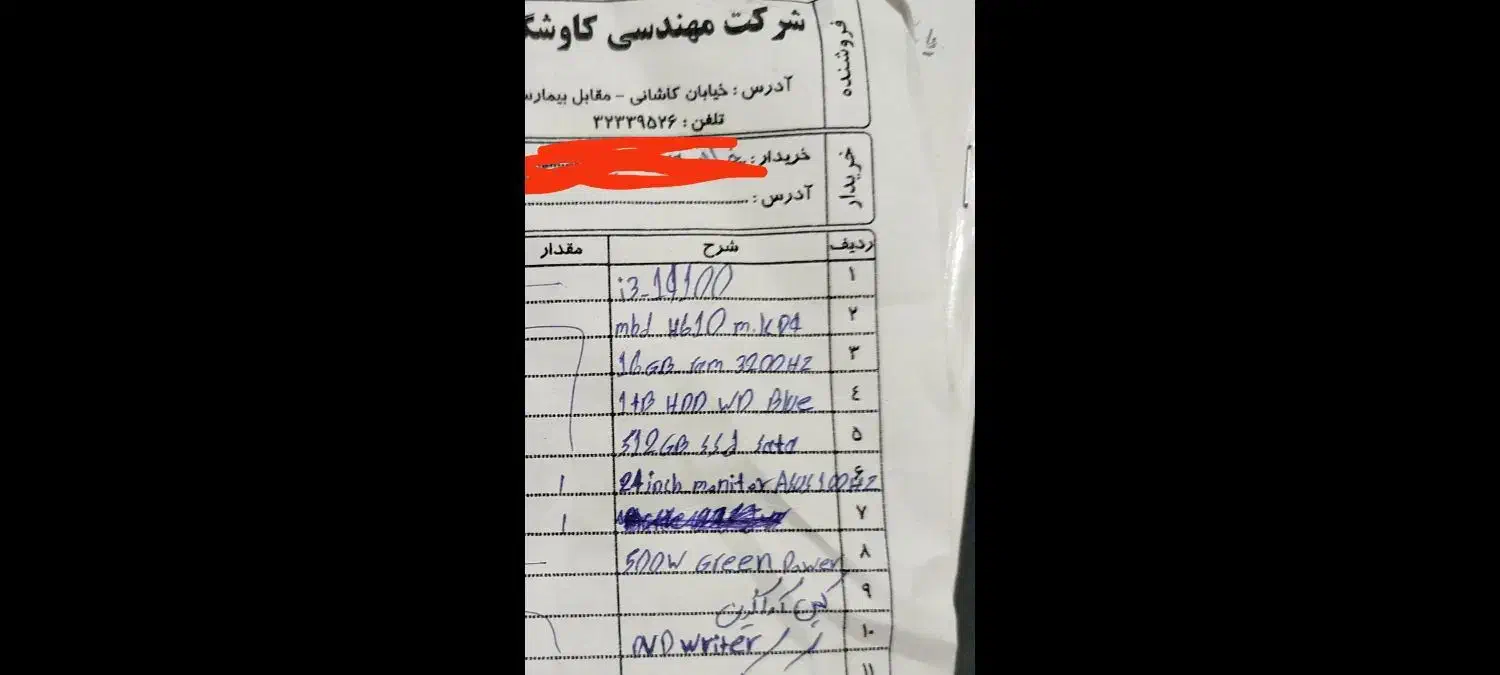 شرکت مهندسی کاوشگ
آدرس : خیابان کاشانی - مقابل بیمارس
تلفن : ۳۲۳۳۹۵۲۶
فروشنده
خریدار :
آدرس :
خریدار
ردیف شرح مقدار
۱ i3_14100
۲ mbd H610 m.k D4
۳ 16GB ram 3200HZ
۴ 1tB HDD WD Blue
۵ 512GB ssd sata
۶ 24inch monitor Asus 100HZ ۱
۷ ۱
۸ 500W Green Power
۹ کیس
۱۰ DVD writer
۱۱